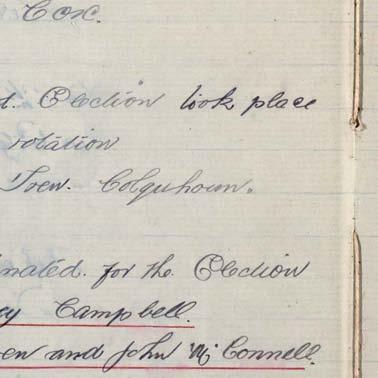 Cox.
t. Election took place
rotation
Colquhoun.
nated. for the Election
ey Campbell.
en and John Mc Connell.